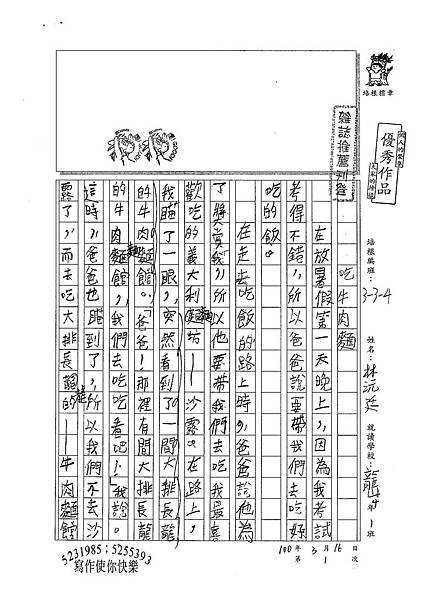 培根標章
國人的榮譽
優秀作品
文家的搖籃
雜誌推薦刊登
培根編班：3-3-4 姓名：林沅廷 就讀學校：龍 1班
100年3月16日
第1次
吃牛肉麵
在放暑假第一天晚上，因為我考試
考得不錯，所以爸爸說要帶我們去吃好
吃的飯。
在走去吃飯的路上時，爸爸說他為
了獎賞我，所以他要帶我們去吃我最喜
歡吃的義大利麵坊——沙露。在路上，
我瞄了一眼，突然看到了一間大排長龍
的牛肉麵館。「爸爸！那裡有間大排長龍
的牛肉麵館，我們去吃吃看吧！」我說。
這時，爸爸也瞄到了，所以我們不去沙
露了，而去吃大排長龍的——牛肉麵館
5231985；5255393
寫作使你快樂